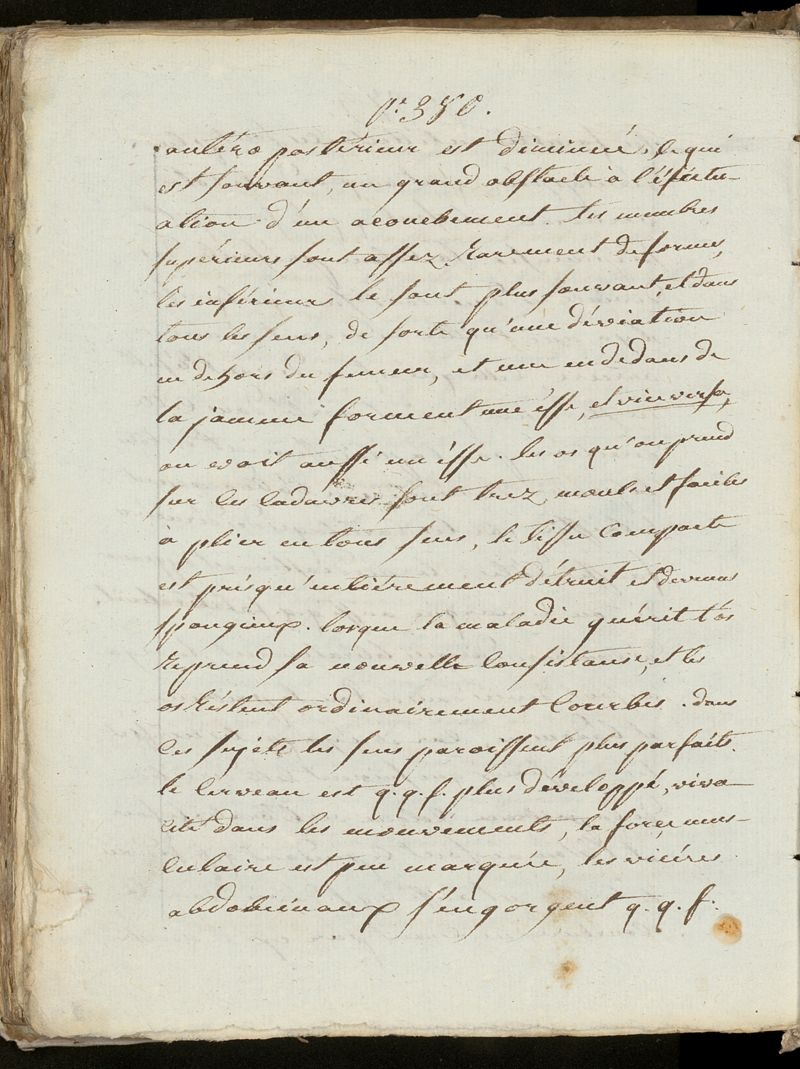 pr 380.
antéro postérieur est diminué, ce qui
est souvant, un grand obstacle à l'éfectu-
ation d'un acouchement. les membres
supérieurs sont assez rarement deformés,
les inférieurs le sont plus souvant, et dans
tous les sens, de sorte qu'une déviation
en dehors du femeur, et une endedans de
la jamme forment une èsse, et vice versa,
on voit aussi un èsse. les os qu'on prend
sur les cadavres sont trez mouls et faciles
à plier en tous sens, le tissu compacte
est présqu'entiérement détruit et devenus
spongieux. lorsque la maladie quérit l'os
reprend sa nouvelle consistance, et les
os réstent ordinairement courbés. dans
ces sujets les sens paroissent plus parfaits.
le cerveau est q. q. f. plus développé, viva-
cité dans les mouvéments, la force mus-
culaire est peu marquée, les vicéres
abdobminaux s'engorgent q. q. f.